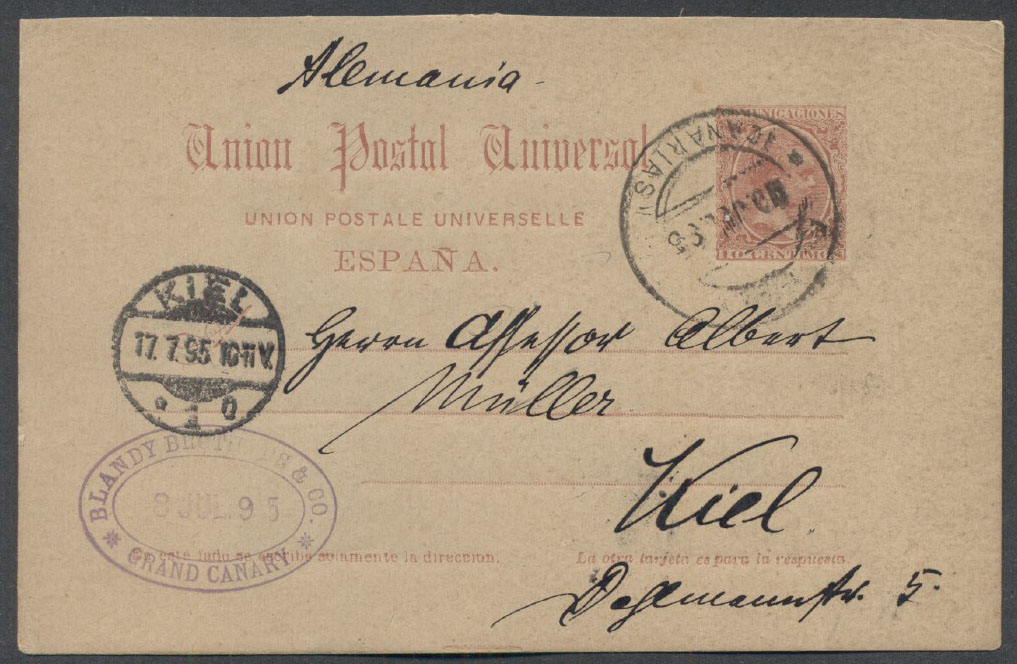 Alemania
Union Postal Universal
COMUNICACIONES
UNION POSTALE UNIVERSELLE
10 CENTIMOS
ESPAÑA.
CANARIAS
KIEL
17. 7. 95 10-11 V.
1
Herrn Assessor Albert
Müller
Kiel
Dahlmannstr. 5.
BLANDY BROTHERS & CO.
8 JUL. 95
GRAND CANARY
En este lado se escribe solamente la direccion.
La otra tarjeta es para la respuesta.